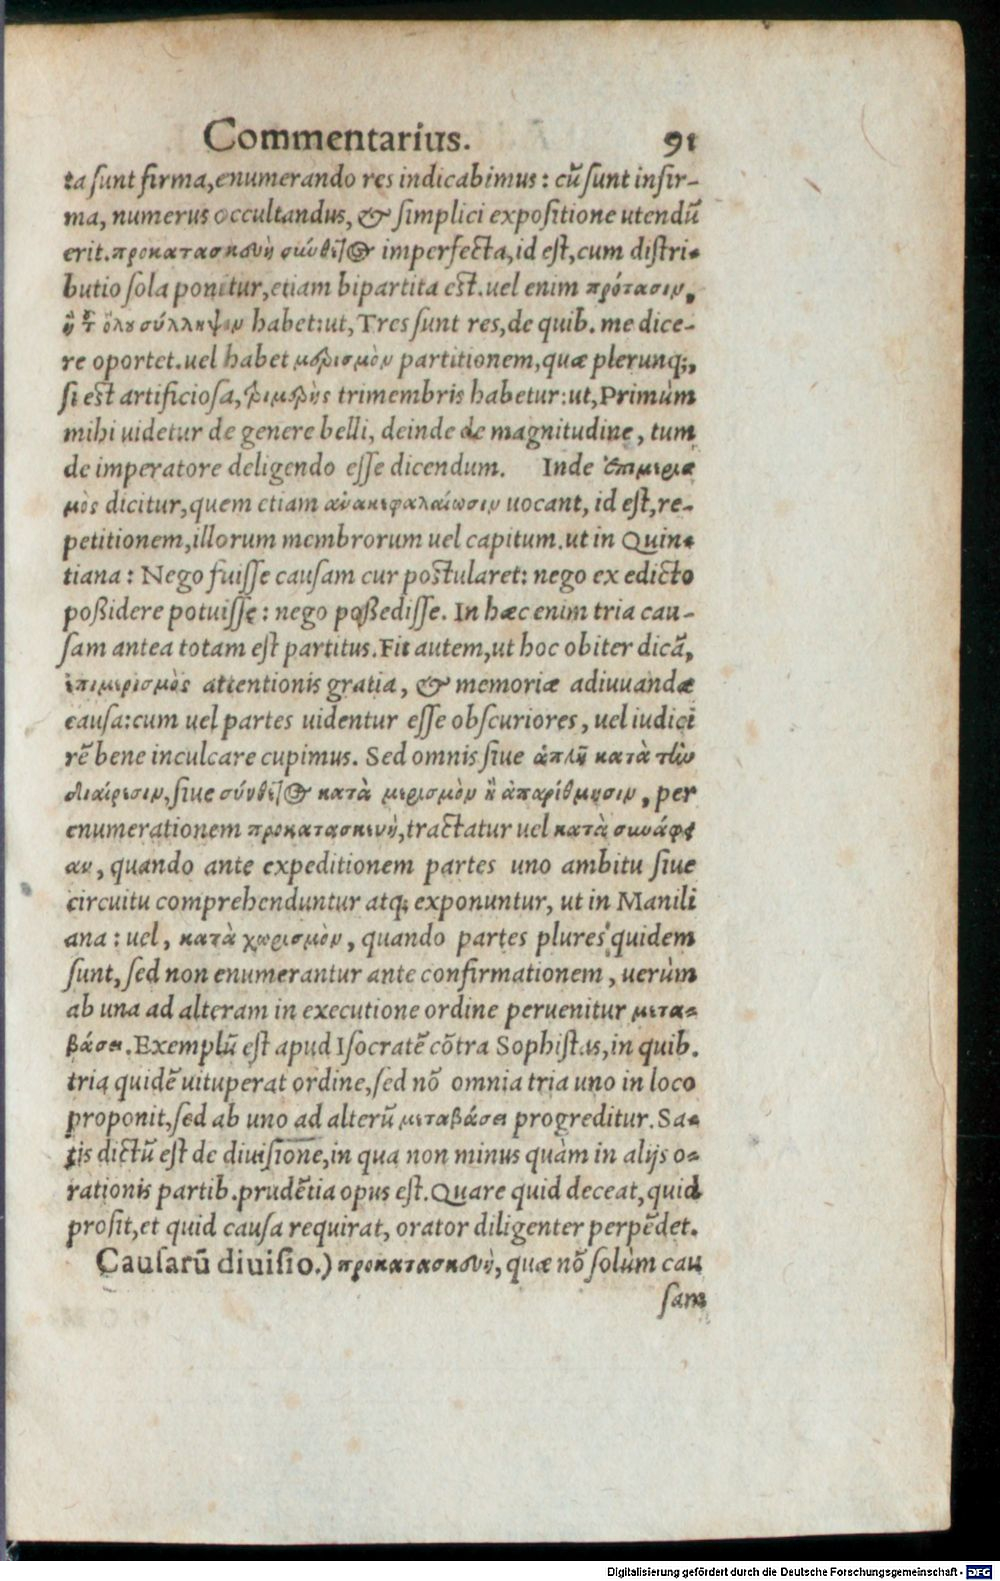 Commentarius. 91
ta sunt firma, enumerando res indicabimus: cũ sunt infir-
ma, numerus occultandus, & simplici expositione utendũ
erit. προκατασκευὴ σύνθετος imperfecta, id est, cum distri-
butio sola ponitur, etiam bipartita est. uel enim πρότασιν,
ἢ τ̃ ὅλου σύλληψιν habet: ut, Tres sunt res, de quib. me dice-
re oportet. uel habet μερισμὸν partitionem, quæ plerunq;,
si est artificiosa, τριμερὴς trimembris habetur: ut, Primùm
mihi uidetur de genere belli, deinde de magnitudine, tum
de imperatore deligendo esse dicendum. Inde ἐπιμερισ
μὸς dicitur, quem etiam ἀνακεφαλαίωσιν uocant, id est, re-
petitionem, illorum membrorum uel capitum. ut in Quin-
tiana: Nego fuisse causam cur postularet: nego ex edicto
poßidere potuisse: nego poßedisse. In hæc enim tria cau-
sam antea totam est partitus. Fit autem, ut hoc obiter dicã,
ἐπιμερισμὸς attentionis gratia, & memoriæ adiuuandæ
causa: cum uel partes uidentur esse obscuriores, uel iudici
rẽ bene inculcare cupimus. Sed omnis siue ἁπλῆ κατὰ τὴν
διαίρεσιν, siue σύνθετος κατὰ μερισμὸν ἢ ἀπαρίθμησιν, per
enumerationem προκατασκευὴ, tractatur uel κατὰ συνάφει
αν, quando ante expeditionem partes uno ambitu siue
circuitu comprehenduntur atq; exponuntur, ut in Manili
ana: uel, κατὰ χωρισμὸν, quando partes plures quidem
sunt, sed non enumerantur ante confirmationem, uerùm
ab una ad alteram in executione ordine peruenitur μετα-
βάσει. Exemplũ est apud Isocratẽ cõtra Sophistas, in quib.
tria quidẽ uituperat ordine, sed nõ omnia tria uno in loco
proponit, sed ab uno ad alterũ μεταβάσει progreditur. Sa-
tis dictũ est de diuisione, in qua non minus quàm in alijs o-
rationis partib. prudẽtia opus est. Quare quid deceat, quid
prosit, et quid causa requirat, orator diligenter perpẽdet.
Causarũ diuisio.) προκατασκευὴ, quæ nõ solùm cau
sam
Digitalisierung gefördert durch die Deutsche Forschungsgemeinschaft - DFG